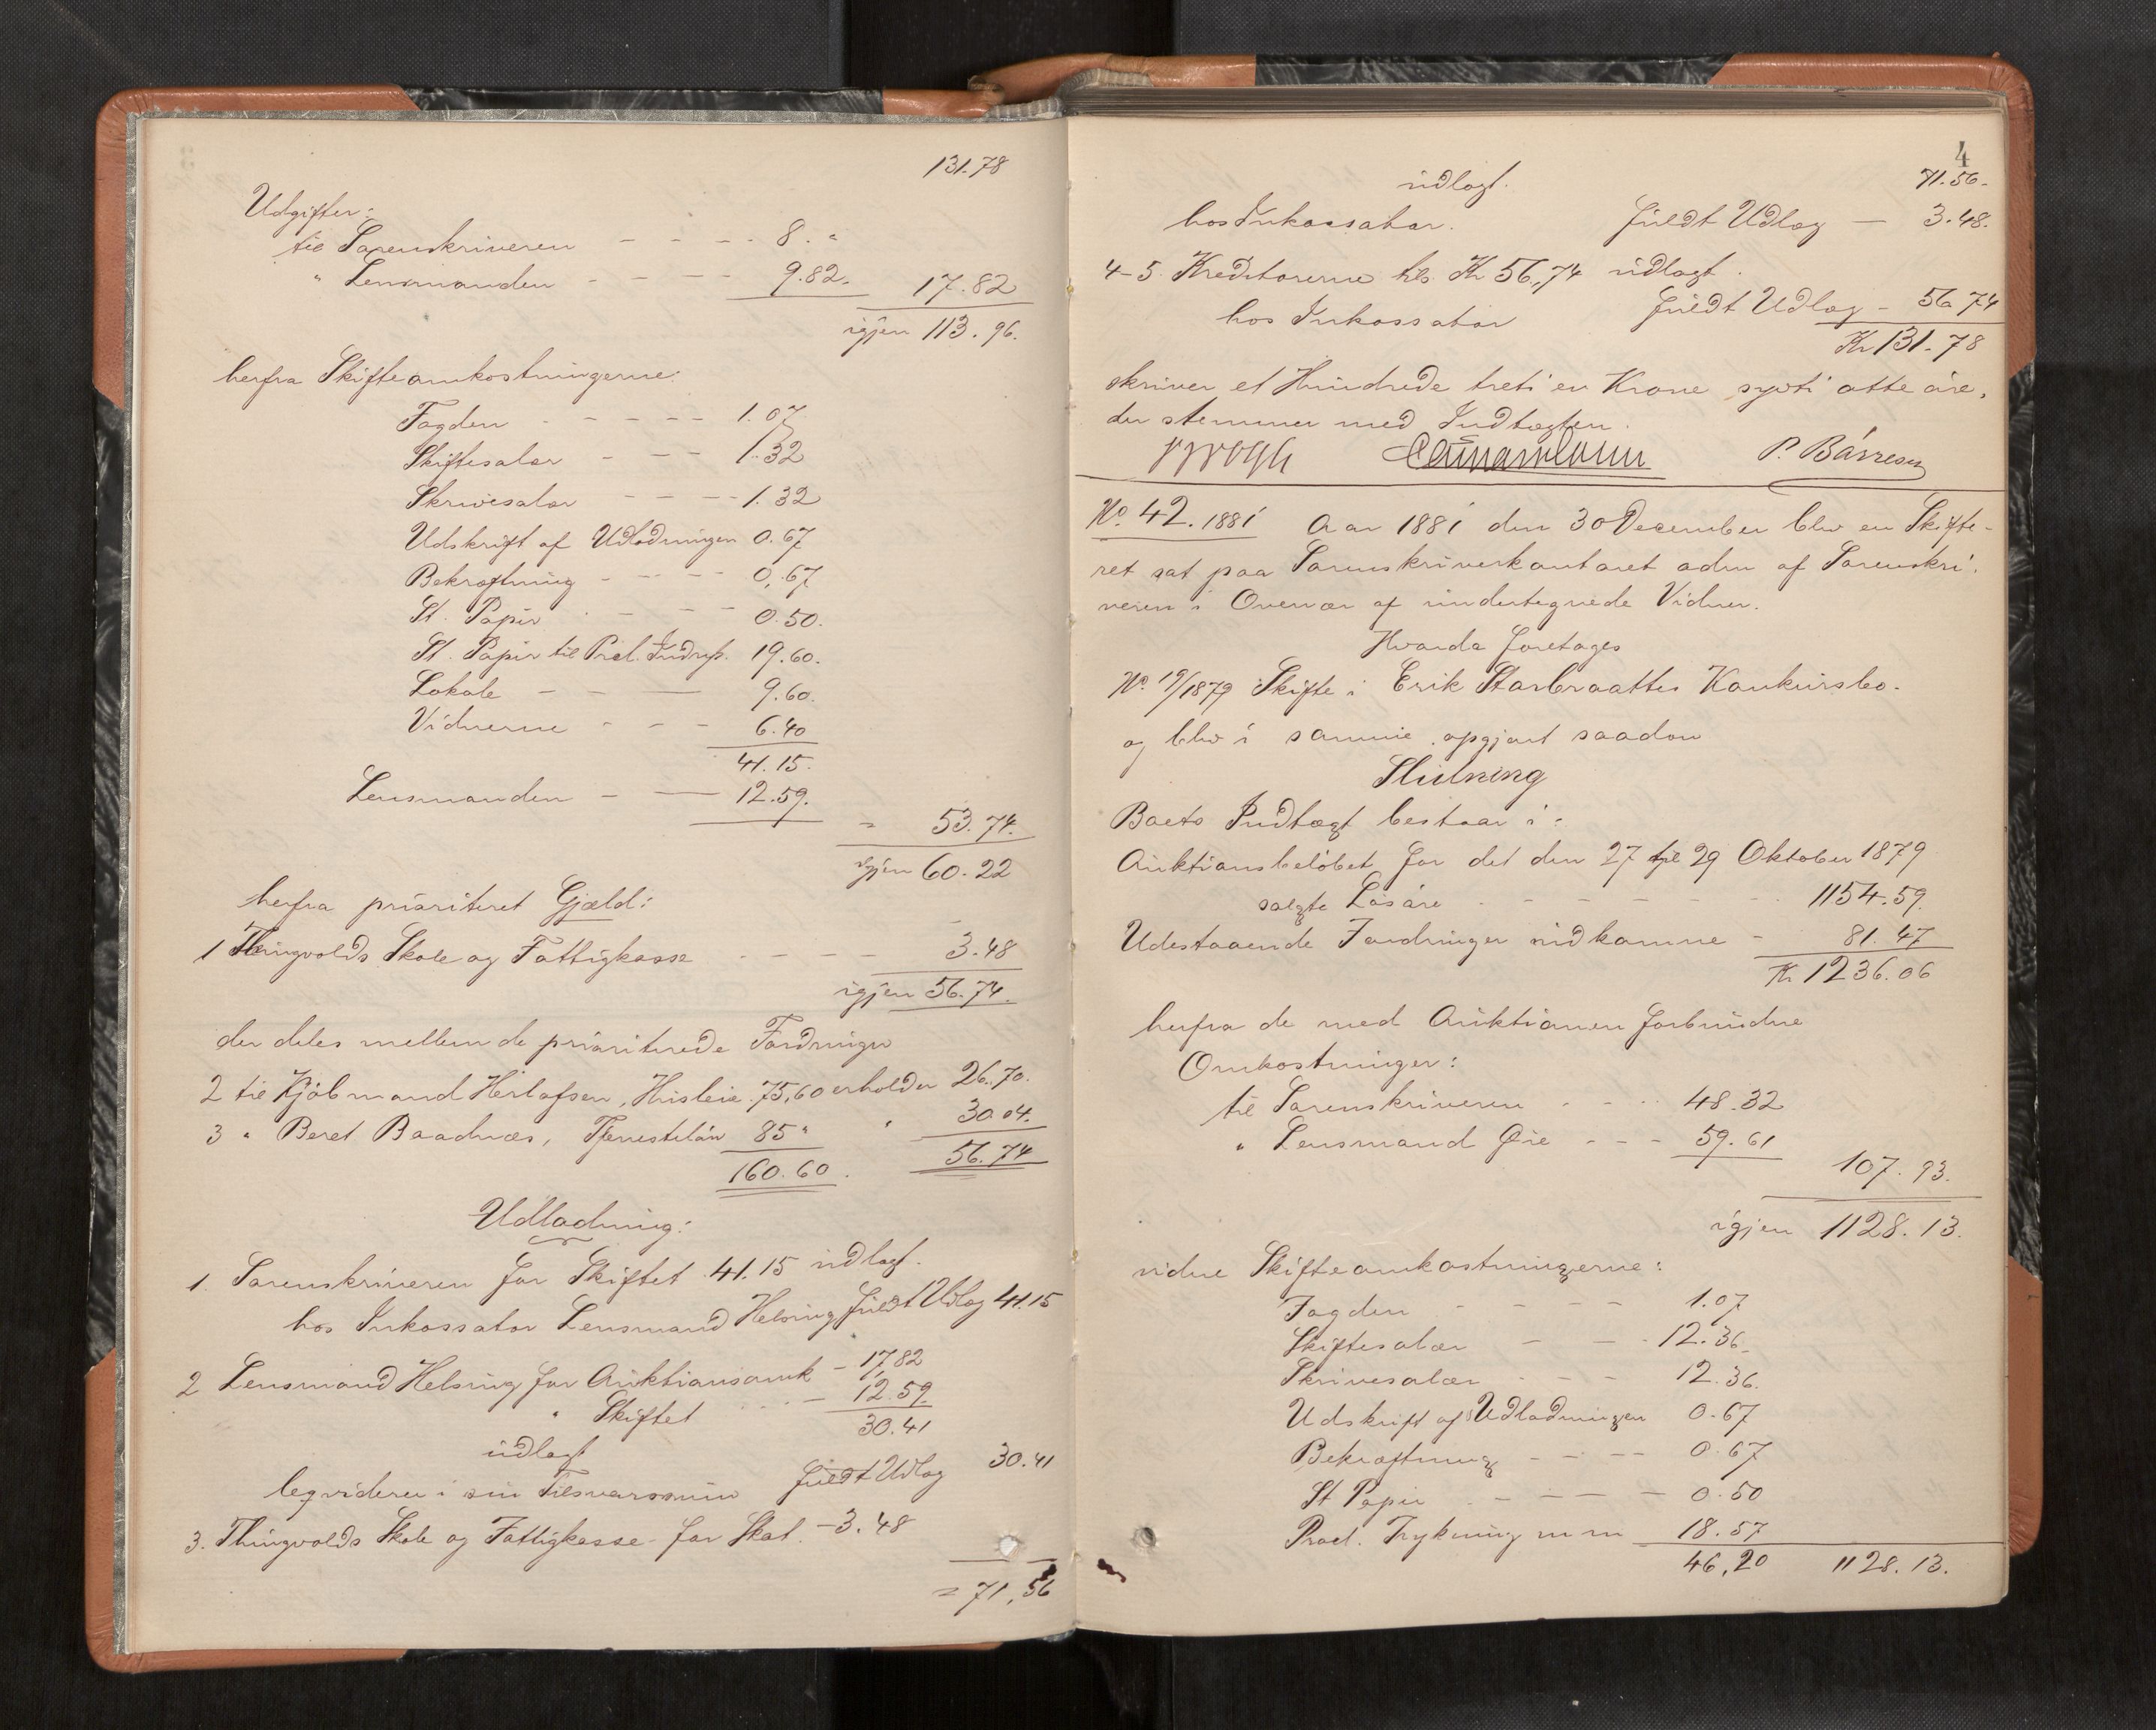 131.78
Udgifter:
til Sorenskriveren - - - - 8. "
" Lensmanden - - - - 9.82. 17.82
igjen 113.96.
herfra Skifteomkostningerne:
Fogden - - - - - 1.07
Skiftesalær - - - 1.32
Skrivesalær - - - - 1.32
Udskrift af Udlodningen 0.67
Bekræftning - - - - 0.67
St. Papir - - - - 0.50.
St. Papir til Procl. Indryk. 19.60.
Lokale - - - 9.60.
Vidnerne - - - 6.40
41.15.
Lensmanden - - 12.59.
= 53.74.
igjen 60.22
herfra prioriteret Gjæld:
1 Thingvolds Skole og Fattigkasse - - - - 3.48
igjen 56.74.
der deles mellem de prioriterede Fordringer
2 til Kjøbmand Herlofsen, Husleie 75,60 erholder 26.70.
3 " Beret Baadnæs, Tjenesteløn 85 " " 30.04.
160.60. 56.74
Udlodning:
1. Sorenskriveren for Skiftet 41.15 udlagt.
hos Inkassator Lensmand Helsing fuldt Udlæg 41.15
2 Lensmand Helsing for Auktionsomk - 17,82
" Skiftet - - - 12.59.
30.41
udlagt
leqviderer i sin Tilsvarssum fuldt Udlæg 30.41
3. Thingvolds Skole og Fattigkasse for Skat. - 3.48
= 71,56
4
udlagt. 71.56-
hos Inkassator. fuldt Udlæg - 3.48.
4-5 Kreditorerne tils. Kr 56,74 udlagt.
hos Inkassator fuldt Udlæg - 56 74
Kr 131.78
skriver et Hundrede treti en Krone sytti otte øre,
der stemmer med Indtægten.
P. Bárresen
No. 42. 1881 Aar 1881 den 30 December blev en Skifte-
ret sat paa Sorenskriverkontoret adm af Sorenskri-
veren i Overvær af undertegnede Vidner.
Hvorda foretages
No. 19/1879 Skifte i Erik Storbraattes Konkursbo.
og blev i samme opgjort saadan
Slutning
Boets Indtægt bestaar i:
Auktionsbeløbet for det den 27 til 29 Oktober 1879
solgte Løsøre - - - - - - 1154.59.
Udestaaende Fordringer indkomne - 81.47
Kr 1236.06
herfra de med Auktionen forbundne
Omkostninger:
til Sorenskriveren - - - 48.32
" Lensmand Øie - - - 59.61
107.93.
igjen 1128.13.
vidre Skifteomkostningerne:
Fogden - - - - 1.07
Skiftesalær - - - 12.36.
Skrivesalær - - - 12.36.
Udskrift af Udlodningen 0.67
Bekræftning - - - 0.67
St Papir - - - - 0.50
Procl. Trykning m m 18.57
46,20 1128.13.